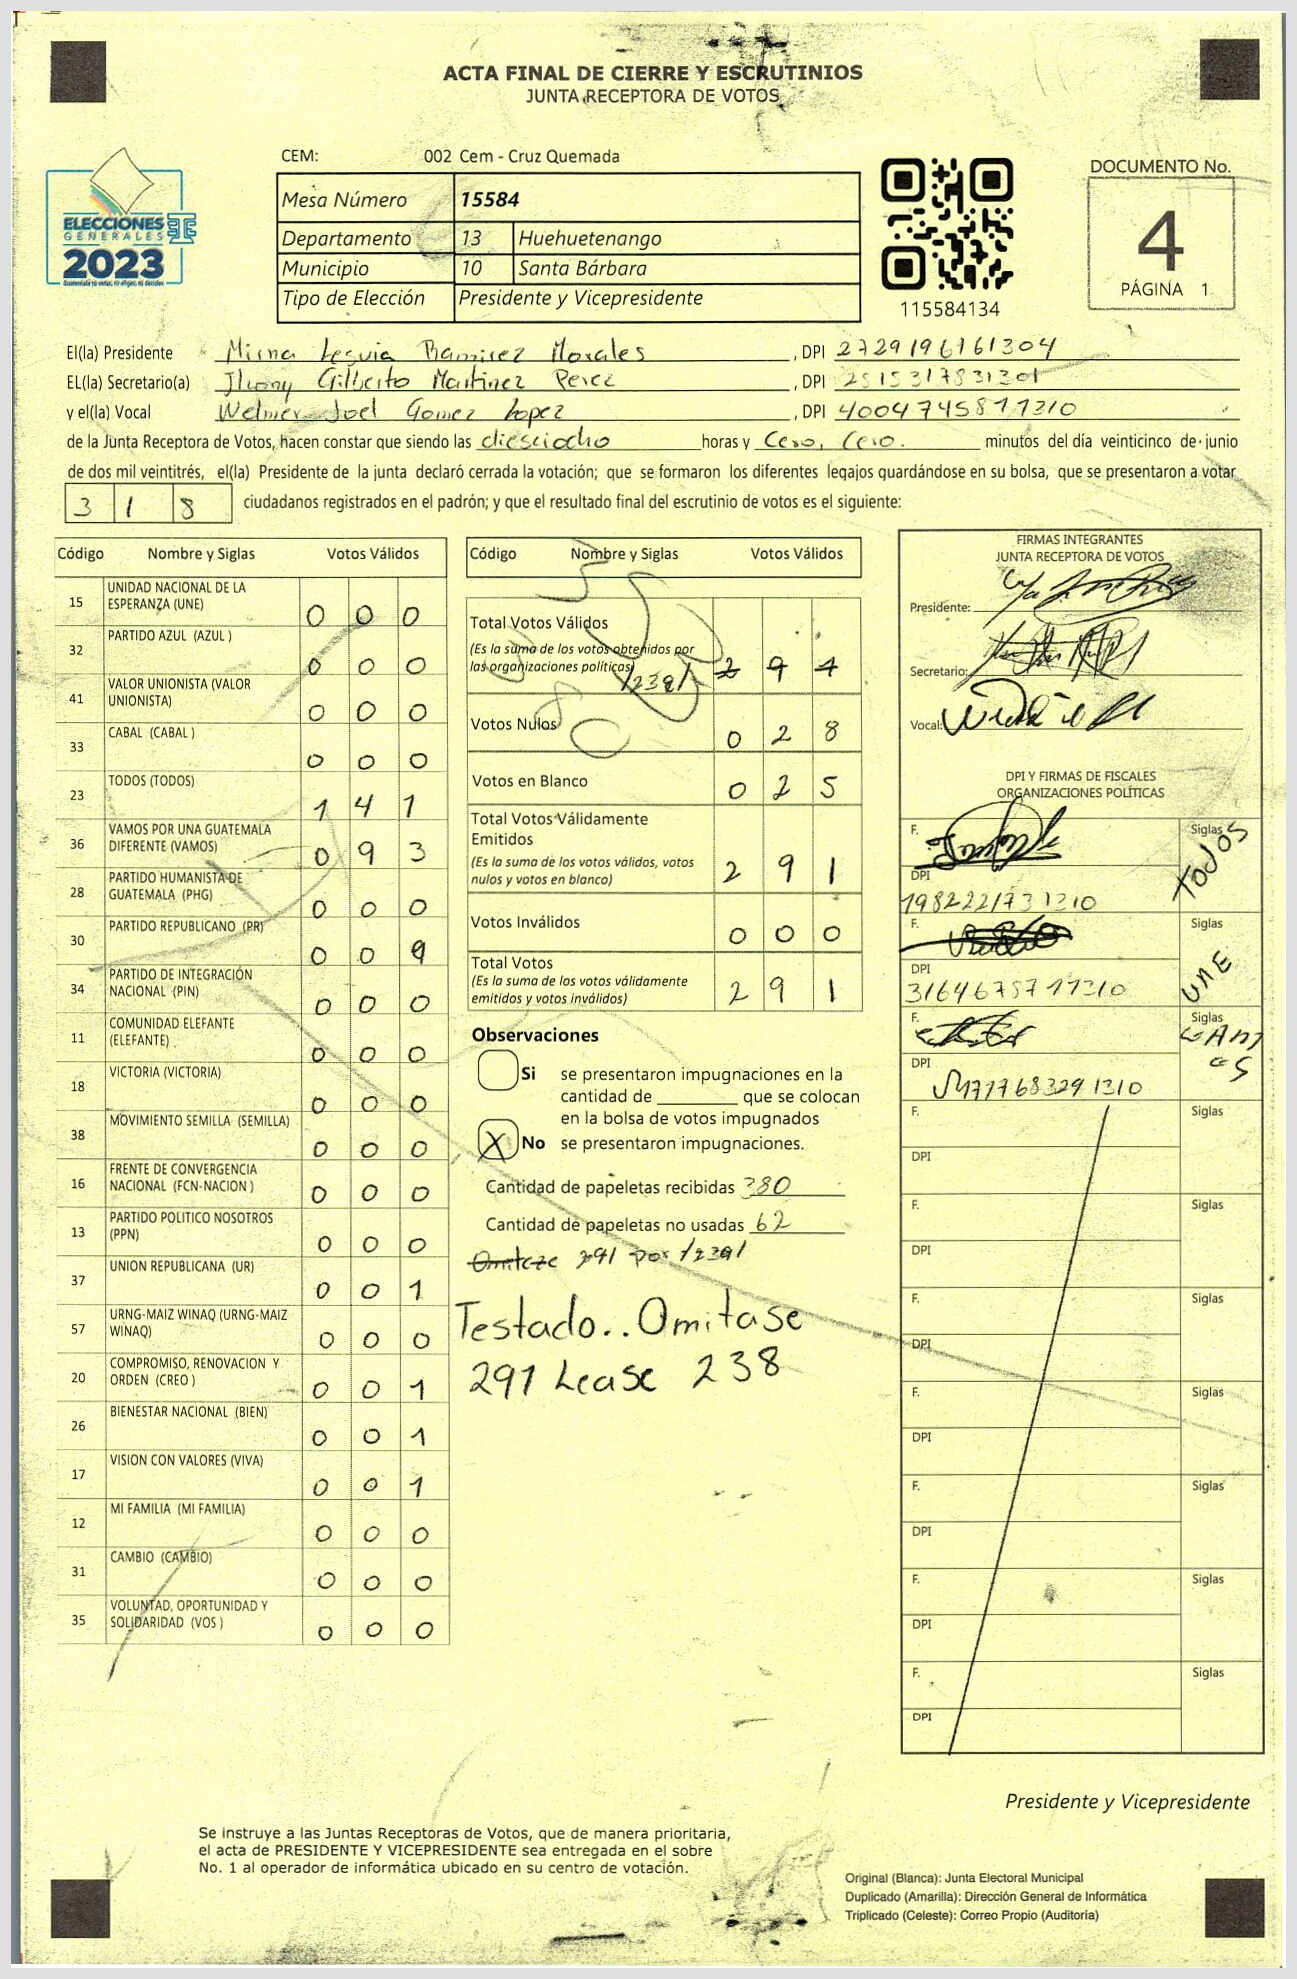 ACTA FINAL DE CIERRE Y ESCRUTINIOS
JUNTA RECEPTORA DE VOTOS
CEM: 002 Cem - Cruz Quemada
ELECCIONES
GENERALES
2023
Mesa Número 15584
Departamento 13 Huehuetenango
Municipio 10 Santa Bárbara
Tipo de Elección Presidente y Vicepresidente
115584134
DOCUMENTO No.
4
PÁGINA 1
El(la) Presidente Ramirez Morales , DPI 2729196161304
EL(la) Secretario(a) Jhony Gilberto Martinez Perez , DPI 2515317831301
y el(la) Vocal Welmer Joel Gomez Lopez , DPI 4004745811310
de la Junta Receptora de Votos, hacen constar que siendo las diesciocho horas y Cero, Cero. minutos del día veinticinco de junio
de dos mil veintitrés, el(la) Presidente de la junta declaró cerrada la votación; que se formaron los diferentes legajos guardándose en su bolsa, que se presentaron a votar
3 1 8 ciudadanos registrados en el padrón; y que el resultado final del escrutinio de votos es el siguiente:
Código Nombre y Siglas Votos Válidos
15 UNIDAD NACIONAL DE LA ESPERANZA (UNE) 0 0 0
32 PARTIDO AZUL (AZUL ) 0 0 0
41 VALOR UNIONISTA (VALOR UNIONISTA) 0 0 0
33 CABAL (CABAL ) 0 0 0
23 TODOS (TODOS) 1 4 1
36 VAMOS POR UNA GUATEMALA DIFERENTE (VAMOS) 0 9 3
28 PARTIDO HUMANISTA DE GUATEMALA (PHG) 0 0 0
30 PARTIDO REPUBLICANO (PR) 0 0 9
34 PARTIDO DE INTEGRACIÓN NACIONAL (PIN) 0 0 0
11 COMUNIDAD ELEFANTE (ELEFANTE) 0 0 0
18 VICTORIA (VICTORIA) 0 0 0
38 MOVIMIENTO SEMILLA (SEMILLA) 0 0 0
16 FRENTE DE CONVERGENCIA NACIONAL (FCN-NACION ) 0 0 0
13 PARTIDO POLITICO NOSOTROS (PPN) 0 0 0
37 UNION REPUBLICANA (UR) 0 0 1
57 URNG-MAIZ WINAQ (URNG-MAIZ WINAQ) 0 0 0
20 COMPROMISO, RENOVACION Y ORDEN (CREO ) 0 0 1
26 BIENESTAR NACIONAL (BIEN) 0 0 1
17 VISION CON VALORES (VIVA) 0 0 1
12 MI FAMILIA (MI FAMILIA) 0 0 0
31 CAMBIO (CAMBIO) 0 0 0
35 VOLUNTAD, OPORTUNIDAD Y SOLIDARIDAD (VOS ) 0 0 0
Código Nombre y Siglas Votos Válidos
Total Votos Válidos
(Es la suma de los votos obtenidos por
las organizaciones políticas) 2 9 1
Votos Nulos 0 2 8
Votos en Blanco 0 2 5
Total Votos Válidamente
Emitidos
(Es la suma de los votos válidos, votos
nulos y votos en blanco) 2 9 1
Votos Inválidos 0 0 0
Total Votos
(Es la suma de los votos válidamente
emitidos y votos inválidos) 2 9 1
Observaciones
Si se presentaron impugnaciones en la
cantidad de ________ que se colocan
en la bolsa de votos impugnados
X No se presentaron impugnaciones.
Cantidad de papeletas recibidas 380
Cantidad de papeletas no usadas 62
291 por
Testado.. Omitase
291 Lease 238
FIRMAS INTEGRANTES
JUNTA RECEPTORA DE VOTOS
Presidente:
Secretario:
Vocal:
DPI Y FIRMAS DE FISCALES
ORGANIZACIONES POLÍTICAS
F. Siglas TODOS
DPI
1982221731310
F. Siglas UNE
DPI
3164675711310
F. Siglas
DPI
1717683291310
F. Siglas
DPI
F. Siglas
DPI
F. Siglas
DPI
F. Siglas
DPI
F. Siglas
DPI
F. Siglas
DPI
F. Siglas
DPI
Presidente y Vicepresidente
Se instruye a las Juntas Receptoras de Votos, que de manera prioritaria,
el acta de PRESIDENTE Y VICEPRESIDENTE sea entregada en el sobre
No. 1 al operador de informática ubicado en su centro de votación.
Original (Blanca): Junta Electoral Municipal
Duplicado (Amarilla): Dirección General de Informática
Triplicado (Celeste): Correo Propio (Auditoría)